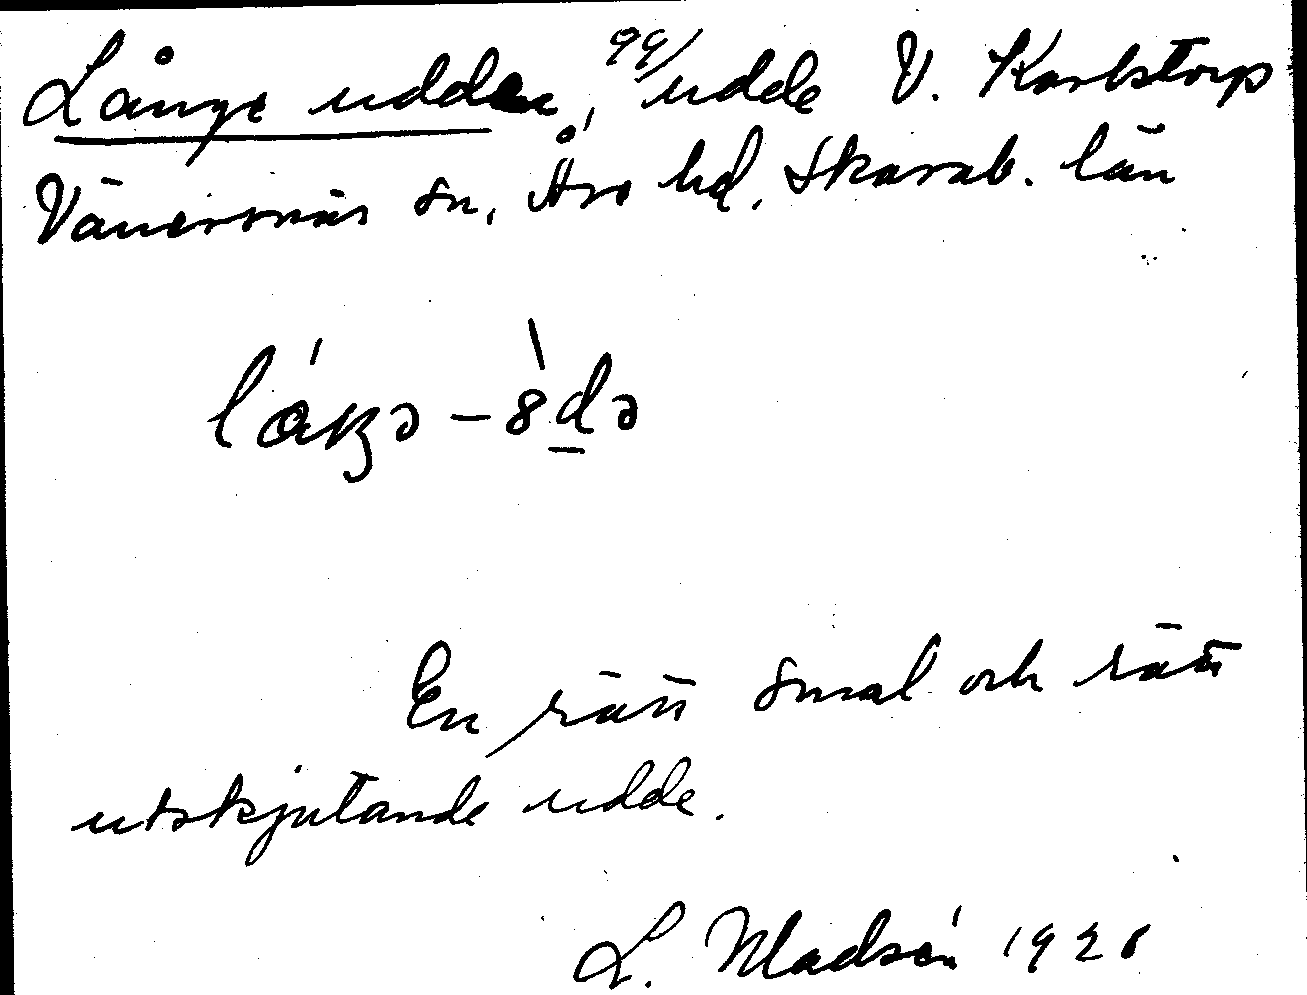 Långe udden, 99/ udde V. Karlstorp
Vänersnäs sn, Åse hd, Skarab. län
En rätt smal och rätt
utskjutande udde.
L. Madsén 192